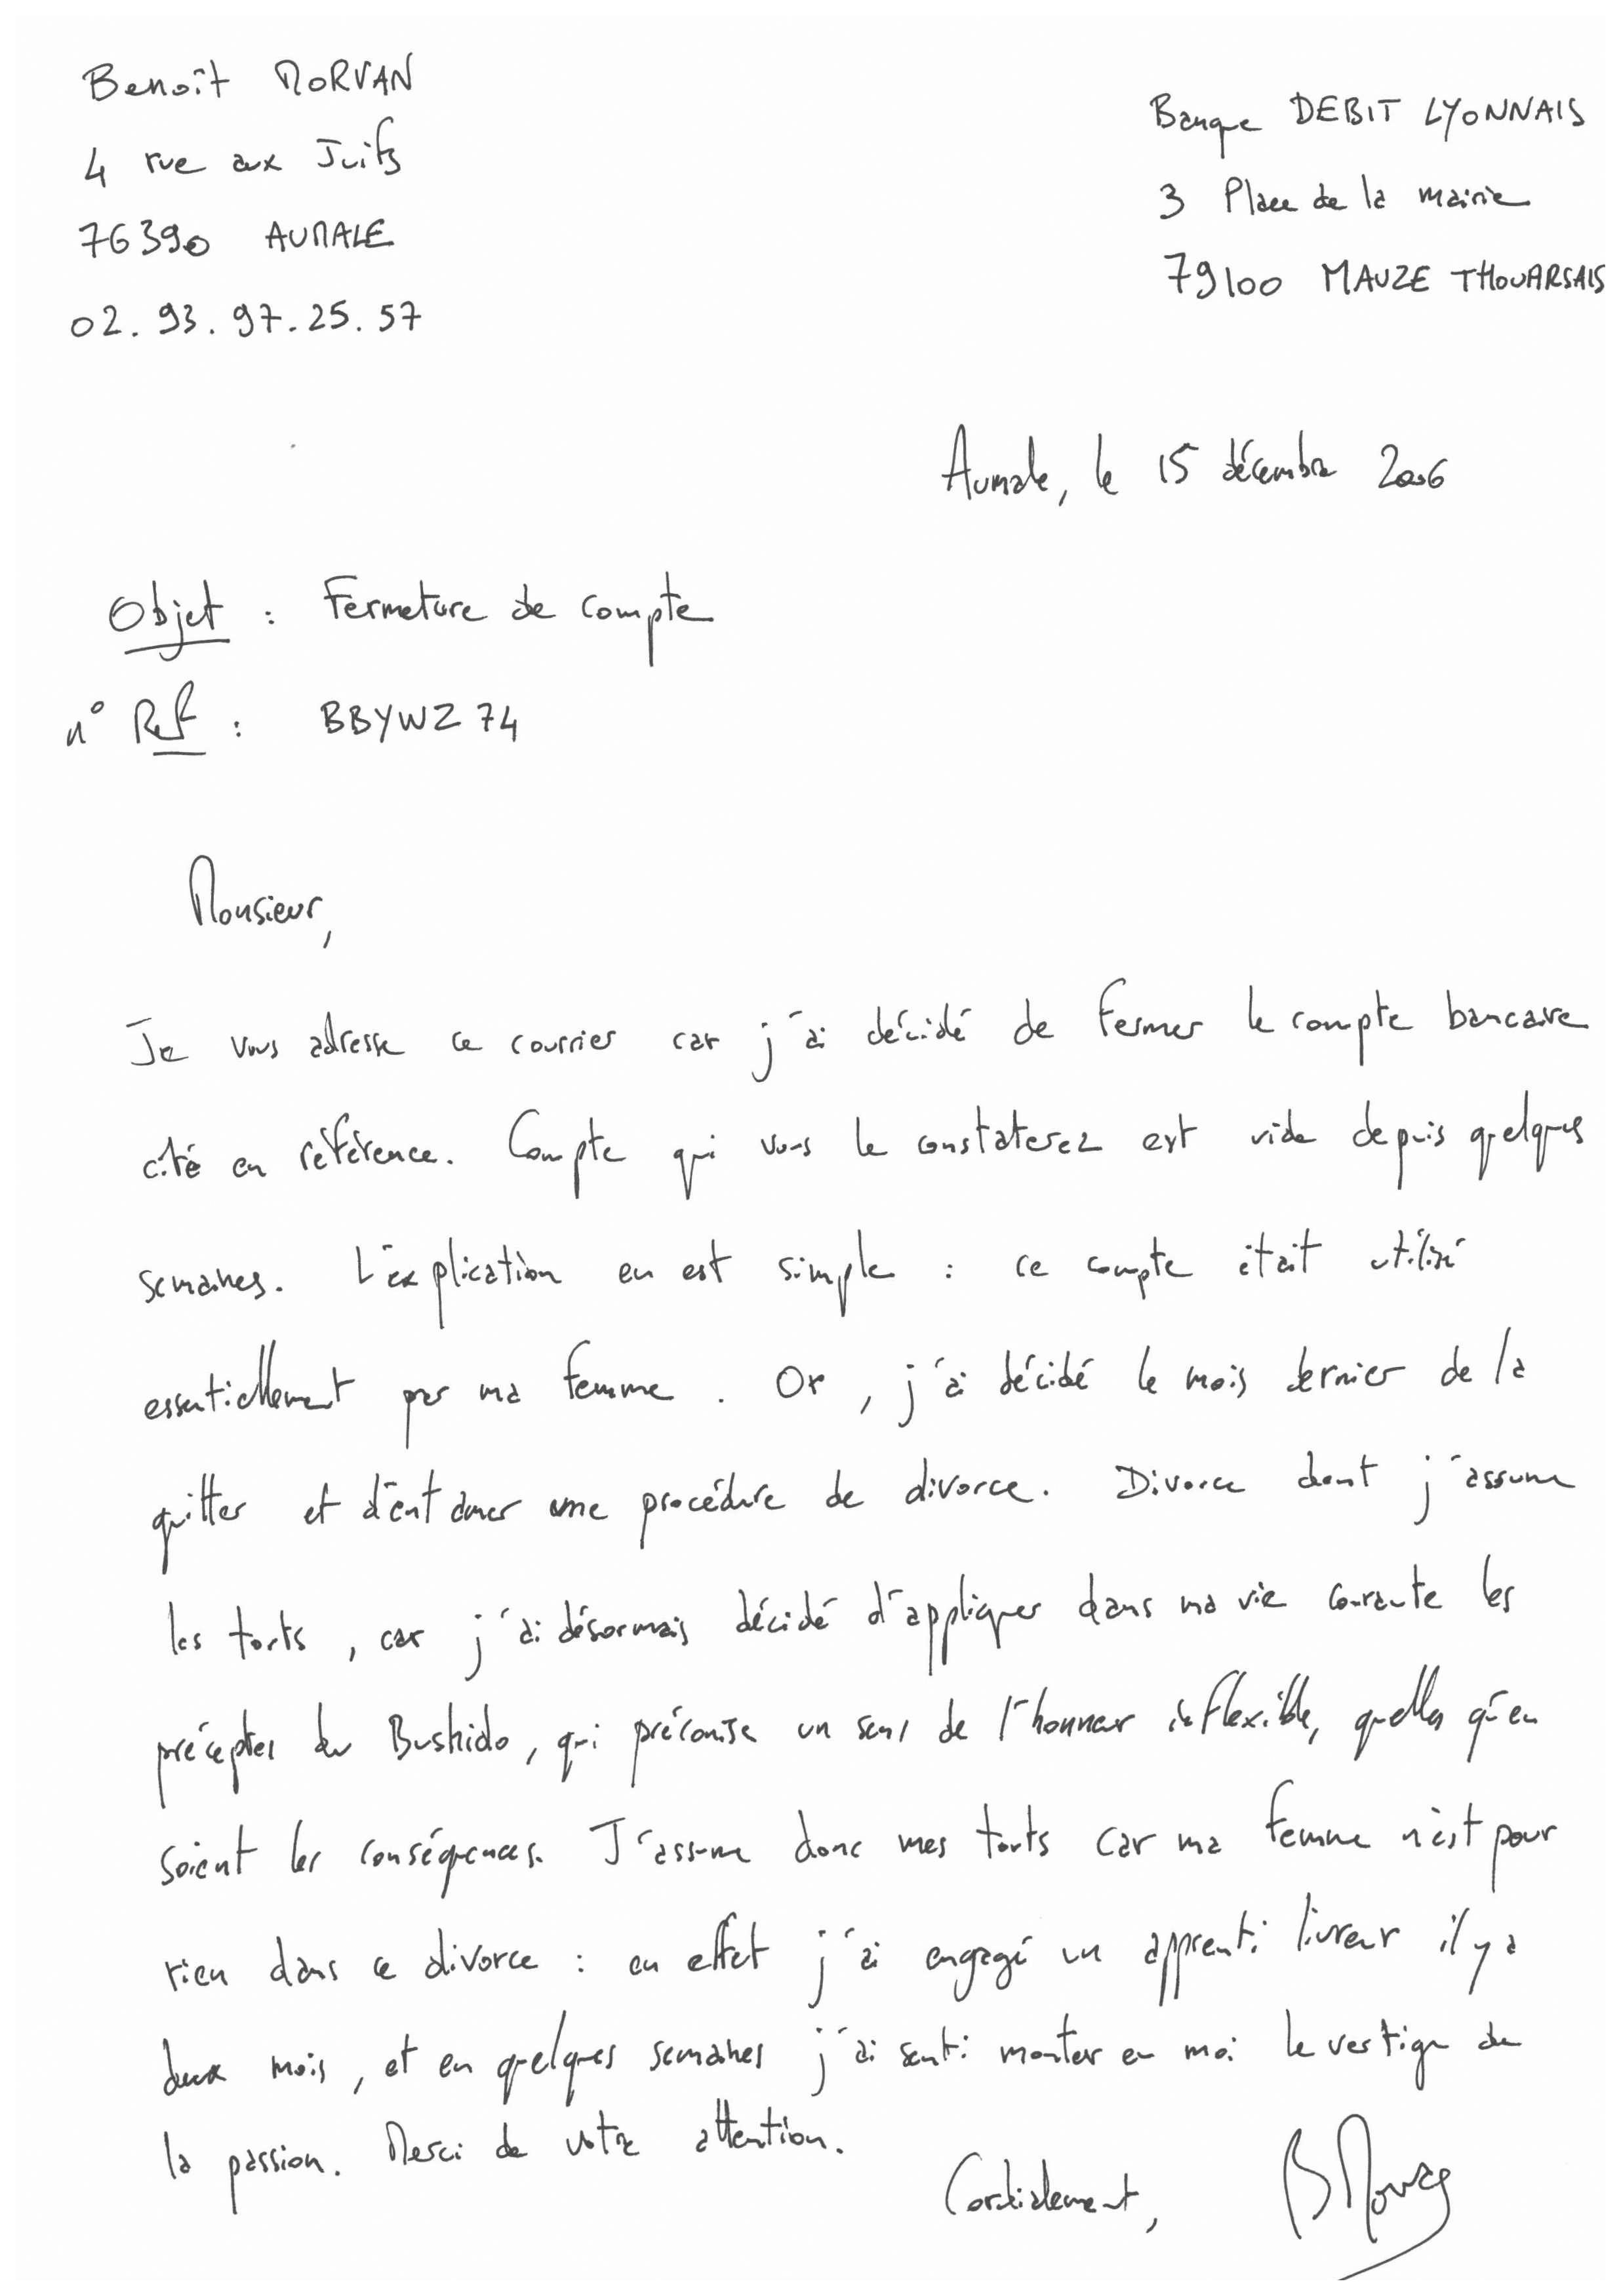 Benoît MORVAN
4 rue aux Juifs
76390 AUMALE
02.93.97.25.57
Banque DEBIT LYONNAIS
3 Place de la mairie
79100 MAUZE THOUARSAIS
Aumale, le 15 décembre 2006
Objet : Fermeture de compte
n° Ref : BBYWZ74
Monsieur,
Je vous adresse ce courrier car j'ai décidé de fermer le compte bancaire
cité en référence. Compte qui vous le constaterez est vide depuis quelques
semaines. L'explication en est simple : ce compte était utilisé
essentiellement par ma femme. Or, j'ai décidé le mois dernier de la
quitter et d'entamer une procédure de divorce. Divorce dont j'assume
les torts, car j'ai désormais décidé d'appliquer dans ma vie courante les
préceptes du Bushido, qui préconise un sens de l'honneur inflexible, quelles qu'en
soient les conséquences. J'assume donc mes torts car ma femme n'est pour
rien dans ce divorce : en effet j'ai engagé un apprenti livreur il y a
deux mois, et en quelques semaines j'ai senti monter en moi le vertige de
la passion. Merci de votre attention.
Cordialement,